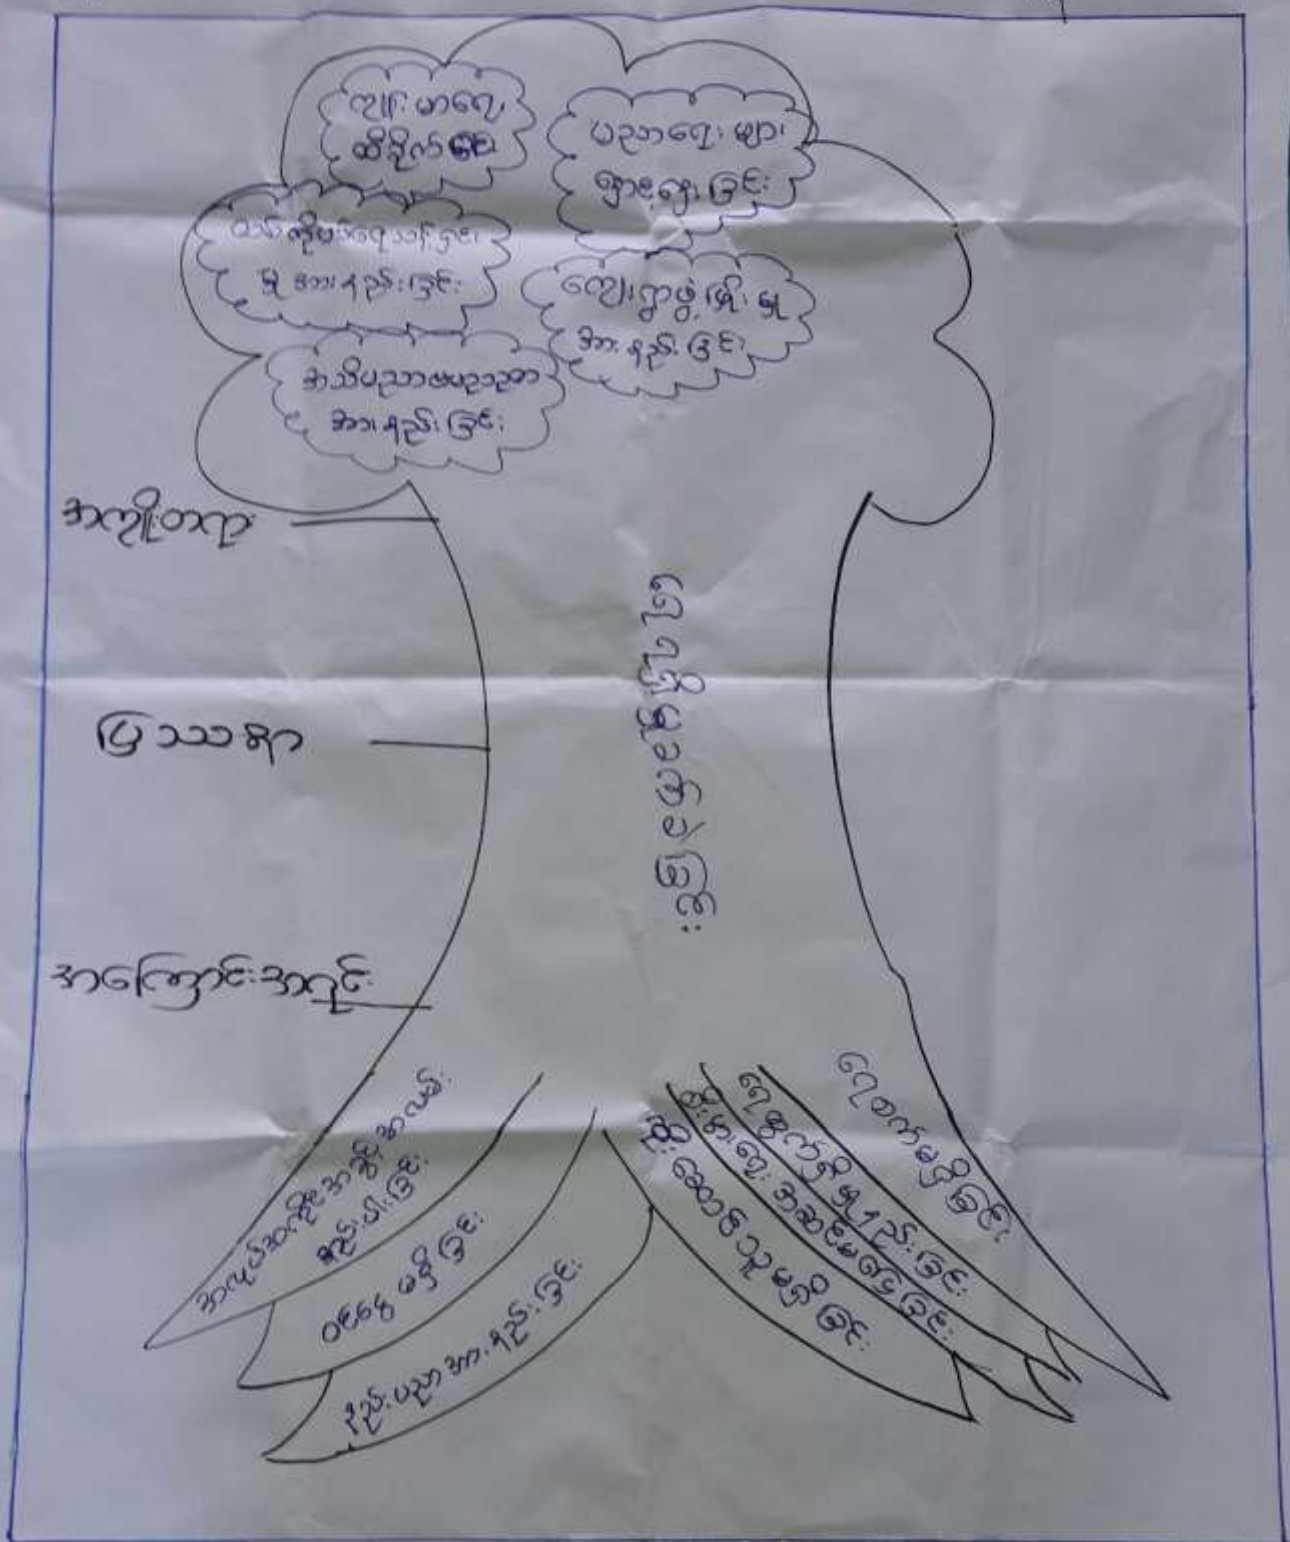 ကျန်းမာရေး
ထိခိုက်ခြင်း
ပညာရေး များ
နှောင့်နှေးခြင်း
တစ်ကိုယ်ရေသန့်ရှင်း
မှု အားနည်းခြင်း
ကျေးရွာဖွံ့ဖြိုးမှု
အားနည်းခြင်း
အသိပညာဗဟုသုတ
အားနည်းခြင်း
အကျိုးတရား
ပြဿနာ
အကြောင်းအရင်း
အလုပ်အကိုင်အခွင့်အလမ်း
နည်းပါးခြင်း
ဝင်ငွေ မရှိခြင်း
နည်းပညာအားနည်းခြင်း
ဦးဆောင်သူ မရှိခြင်း
စီးပွားရေး အဆင်မပြေခြင်း
ရေထွက်ရှိမှုနည်းခြင်း
ရေတွက်မရှိခြင်း